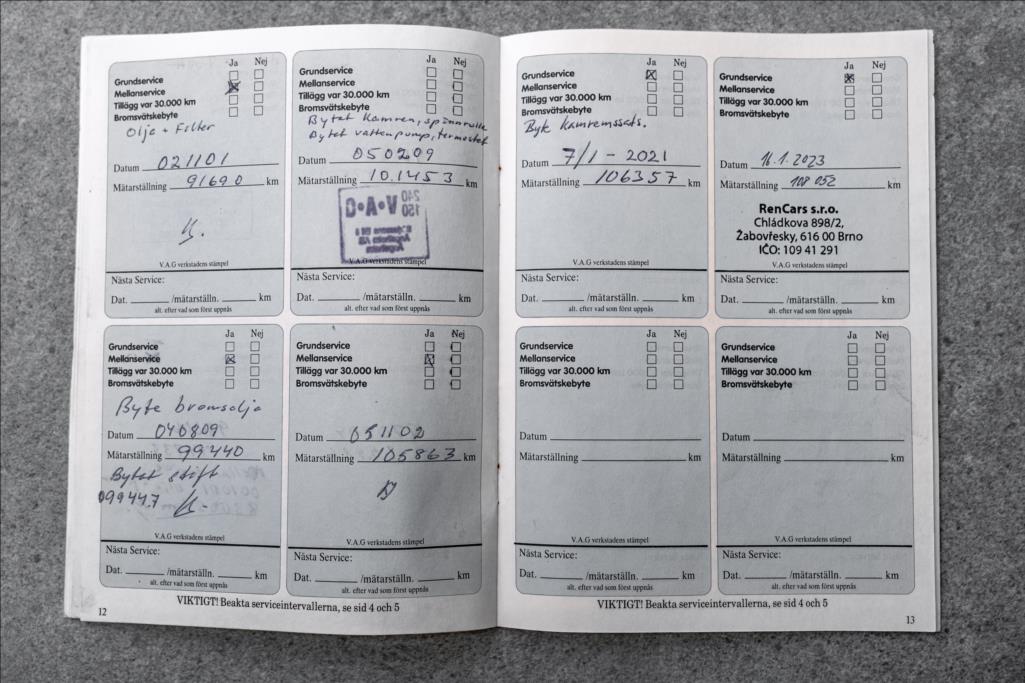 Ja Nej
Grundservice
Mellanservice
Tillägg var 30.000 km
Bromsvätskebyte
Olja + Filter
Datum 021101
Mätarställning 91690 km
V.A.G verkstadens stämpel
Nästa Service:
Dat. /mätarställn. km
alt. efter vad som först uppnås
Ja Nej
Grundservice
Mellanservice
Tillägg var 30.000 km
Bromsvätskebyte
Byte bromsolja
Datum 040809
Mätarställning 99440 km
Bytet stift
099447
V.A.G verkstadens stämpel
Nästa Service:
Dat. /mätarställn. km
alt. efter vad som först uppnås
Ja Nej
Grundservice
Mellanservice
Tillägg var 30.000 km
Bromsvätskebyte
Bytet Kamrem, spännrulle
Bytet vattenpump, termostat
Datum 050209
Mätarställning 10.1453 km
V•A•G
V.A.G verkstadens stämpel
Nästa Service:
Dat. /mätarställn. km
alt. efter vad som först uppnås
Ja Nej
Grundservice
Mellanservice
Tillägg var 30.000 km
Bromsvätskebyte
Datum 051102
Mätarställning 105863 km
V.A.G verkstadens stämpel
Nästa Service:
Dat. /mätarställn. km
alt. efter vad som först uppnås
VIKTIGT! Beakta serviceintervallerna, se sid 4 och 5
12
Ja Nej
Grundservice
Mellanservice
Tillägg var 30.000 km
Bromsvätskebyte
Byt Kamremssats.
Datum 7/1 - 2021
Mätarställning 106357 km
V.A.G verkstadens stämpel
Nästa Service:
Dat. /mätarställn. km
alt. efter vad som först uppnås
Ja Nej
Grundservice
Mellanservice
Tillägg var 30.000 km
Bromsvätskebyte
Datum 16.1.2023
Mätarställning 108 052 km
RenCars s.r.o.
Chládkova 898/2,
Žabovřesky, 616 00 Brno
IČO: 109 41 291
V.A.G verkstadens stämpel
Nästa Service:
Dat. /mätarställn. km
alt. efter vad som först uppnås
Ja Nej
Grundservice
Mellanservice
Tillägg var 30.000 km
Bromsvätskebyte
Datum
Mätarställning km
V.A.G verkstadens stämpel
Nästa Service:
Dat. /mätarställn. km
alt. efter vad som först uppnås
Ja Nej
Grundservice
Mellanservice
Tillägg var 30.000 km
Bromsvätskebyte
Datum
Mätarställning km
V.A.G verkstadens stämpel
Nästa Service:
Dat. /mätarställn. km
alt. efter vad som först uppnås
VIKTIGT! Beakta serviceintervallerna, se sid 4 och 5
13